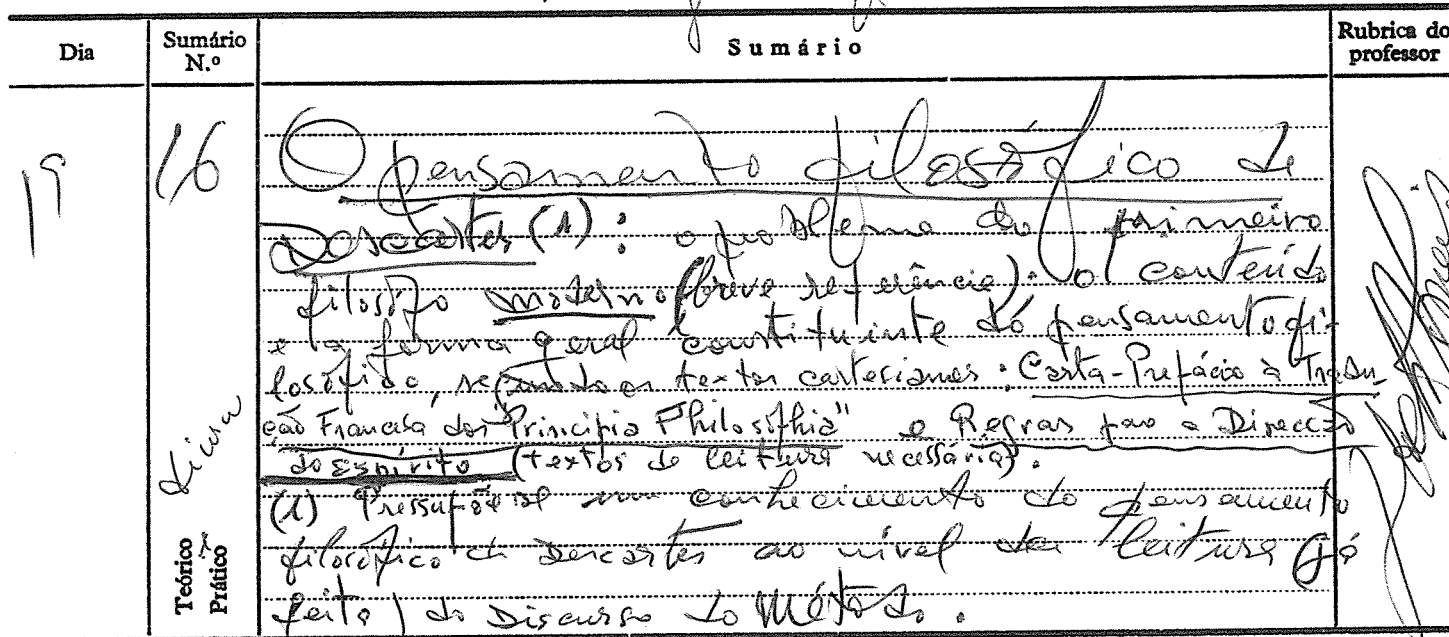 Dia
Sumário N.º
Sumário
Rubrica do professor
19
16
O pensamento filosófico de
Descartes (1): o problema do primeiro
filósofo moderno (breve referência): o conteúdo
e a forma geral constituinte do pensamento fi-
losófico, segundo os textos cartesianos: Carta-Prefácio à Tradu-
ção Francesa dos "Principia Philosophia" e Regras para a Direcção
do Espírito (textos de leitura necessária).
(1) Pressupõe-se um conhecimento do pensamento
filosófico de Descartes ao nível da leitura (já
feita) do Discurso do Método.
Teórico
Prático